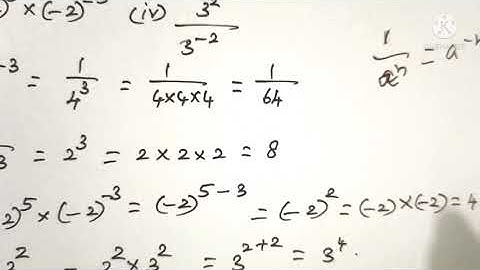 × (-2)^-3 (iv) 3^2 / 3^-2
1 / a^n = a^-n
-3 = 1 / 4^3 = 1 / 4×4×4 = 1 / 64
= 2^3 = 2 × 2 × 2 = 8
2)^5 × (-2)^-3 = (-2)^5-3 = (-2)^2 = (-2) × (-2) = 4
2^2 = 2^2 × 3^2 = 3^2+2 = 3^4.